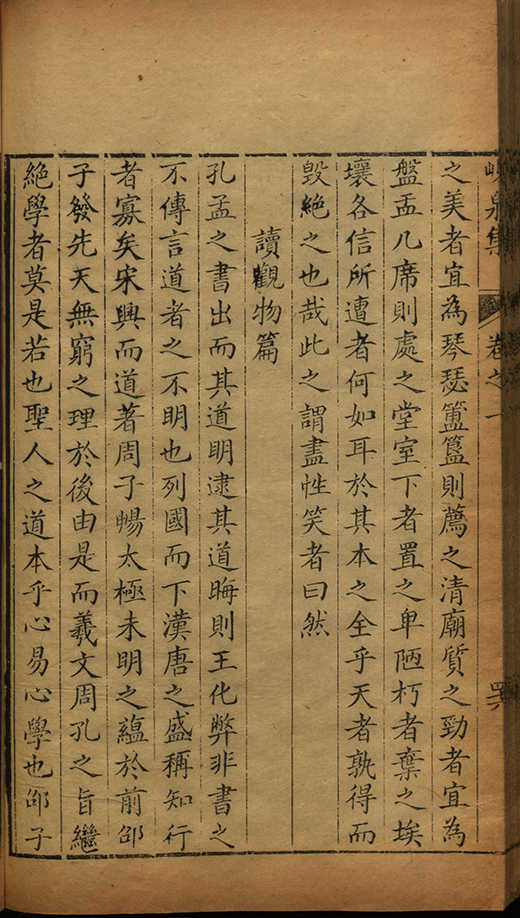 泉集 卷之一
之美者宜為琴瑟簠簋則薦之清廟質之勁者宜為
盤盂几席則處之堂室下者置之卑陋朽者棄之埃
壤各信所遭者何如耳於其本之全乎天者孰得而
毀絕之也哉此之謂盡性笑者曰然
讀觀物篇
孔孟之書出而其道明逮其道晦則王化弊非書之
不傳言道者之不明也列國而下漢唐之盛稱知行
者寡矣宋興而道著周子暢太極未明之蘊於前邵
子發先天無窮之理於後由是而羲文周孔之旨繼
絕學者莫是若也聖人之道本乎心易心學也邵子